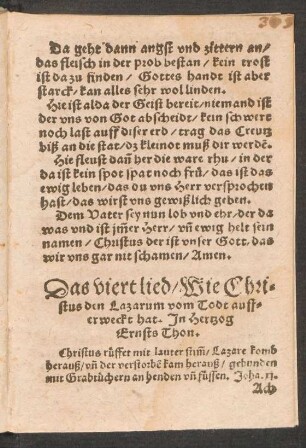 Da geht dann angst vnd zittern an/
das fleisch in der prob bestan / kein trost
ist da zu finden / Gottes handt ist aber
starck / kan alles sehr wol linden.
Hie ist alda der Geist bereit / niemand ist
der vns von Got abscheidt / kein schwert
noch last auff diser erd / trag das Creutz
biß an die stat / dz kleinot muß dir werdē.
Hie fleust dañ her die ware rhu / in der
da ist kein spot spat noch frů / das ist das
ewig leben / das du vns Herr versprochen
hast / das wirst vns gewißlich geben.
Dem Vater sey nun lob vnd ehr / der da
was vnd ist jm̃er Herr / vñ ewig helt sein
namen / Christus der ist vnser Gott / das
wir vns gar nit schamen / Amen.
Das viert lied / Wie Chri-
stus den Lazarum vom Todt auff-
erweckt hat. In Hertzog
Ernsts Thon.
Christus růffet mit lauter stim̃ / Lazare komb
herauß / vñ der verstorbē kam herauß / gebunden
mit Grabtůchern an henden vñ füssen. Joha. xj.
Ach